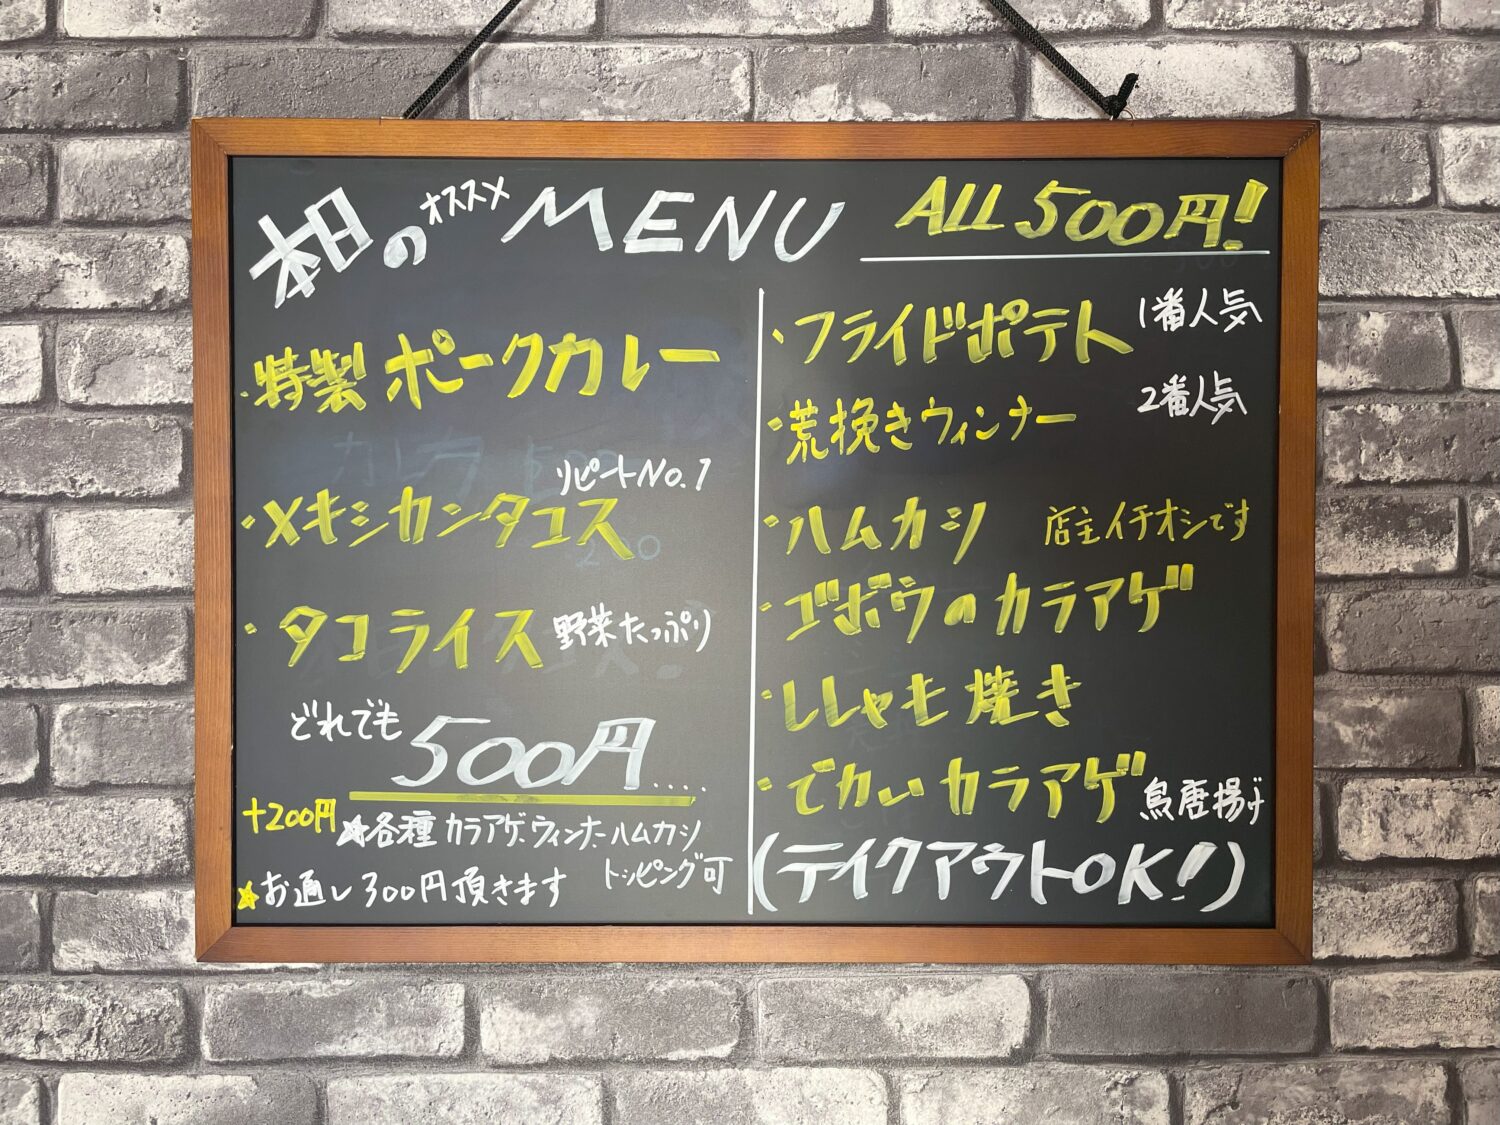 本日のオススメMENU ALL 500円!
・特製ポークカレー
リピートNo.1
・メキシカンタコス
・タコライス 野菜たっぷり
どれでも 500円....
+200円 ★各種カラアゲ、ウィンナー、ハムカツ
トッピング可
★お通し300円頂きます
・フライドポテト 1番人気
・荒挽きウィンナー 2番人気
・ハムカツ 店主イチオシです
・ゴボウのカラアゲ
・ししゃも焼き
・でかいカラアゲ 鳥唐揚げ
(テイクアウトOK!)